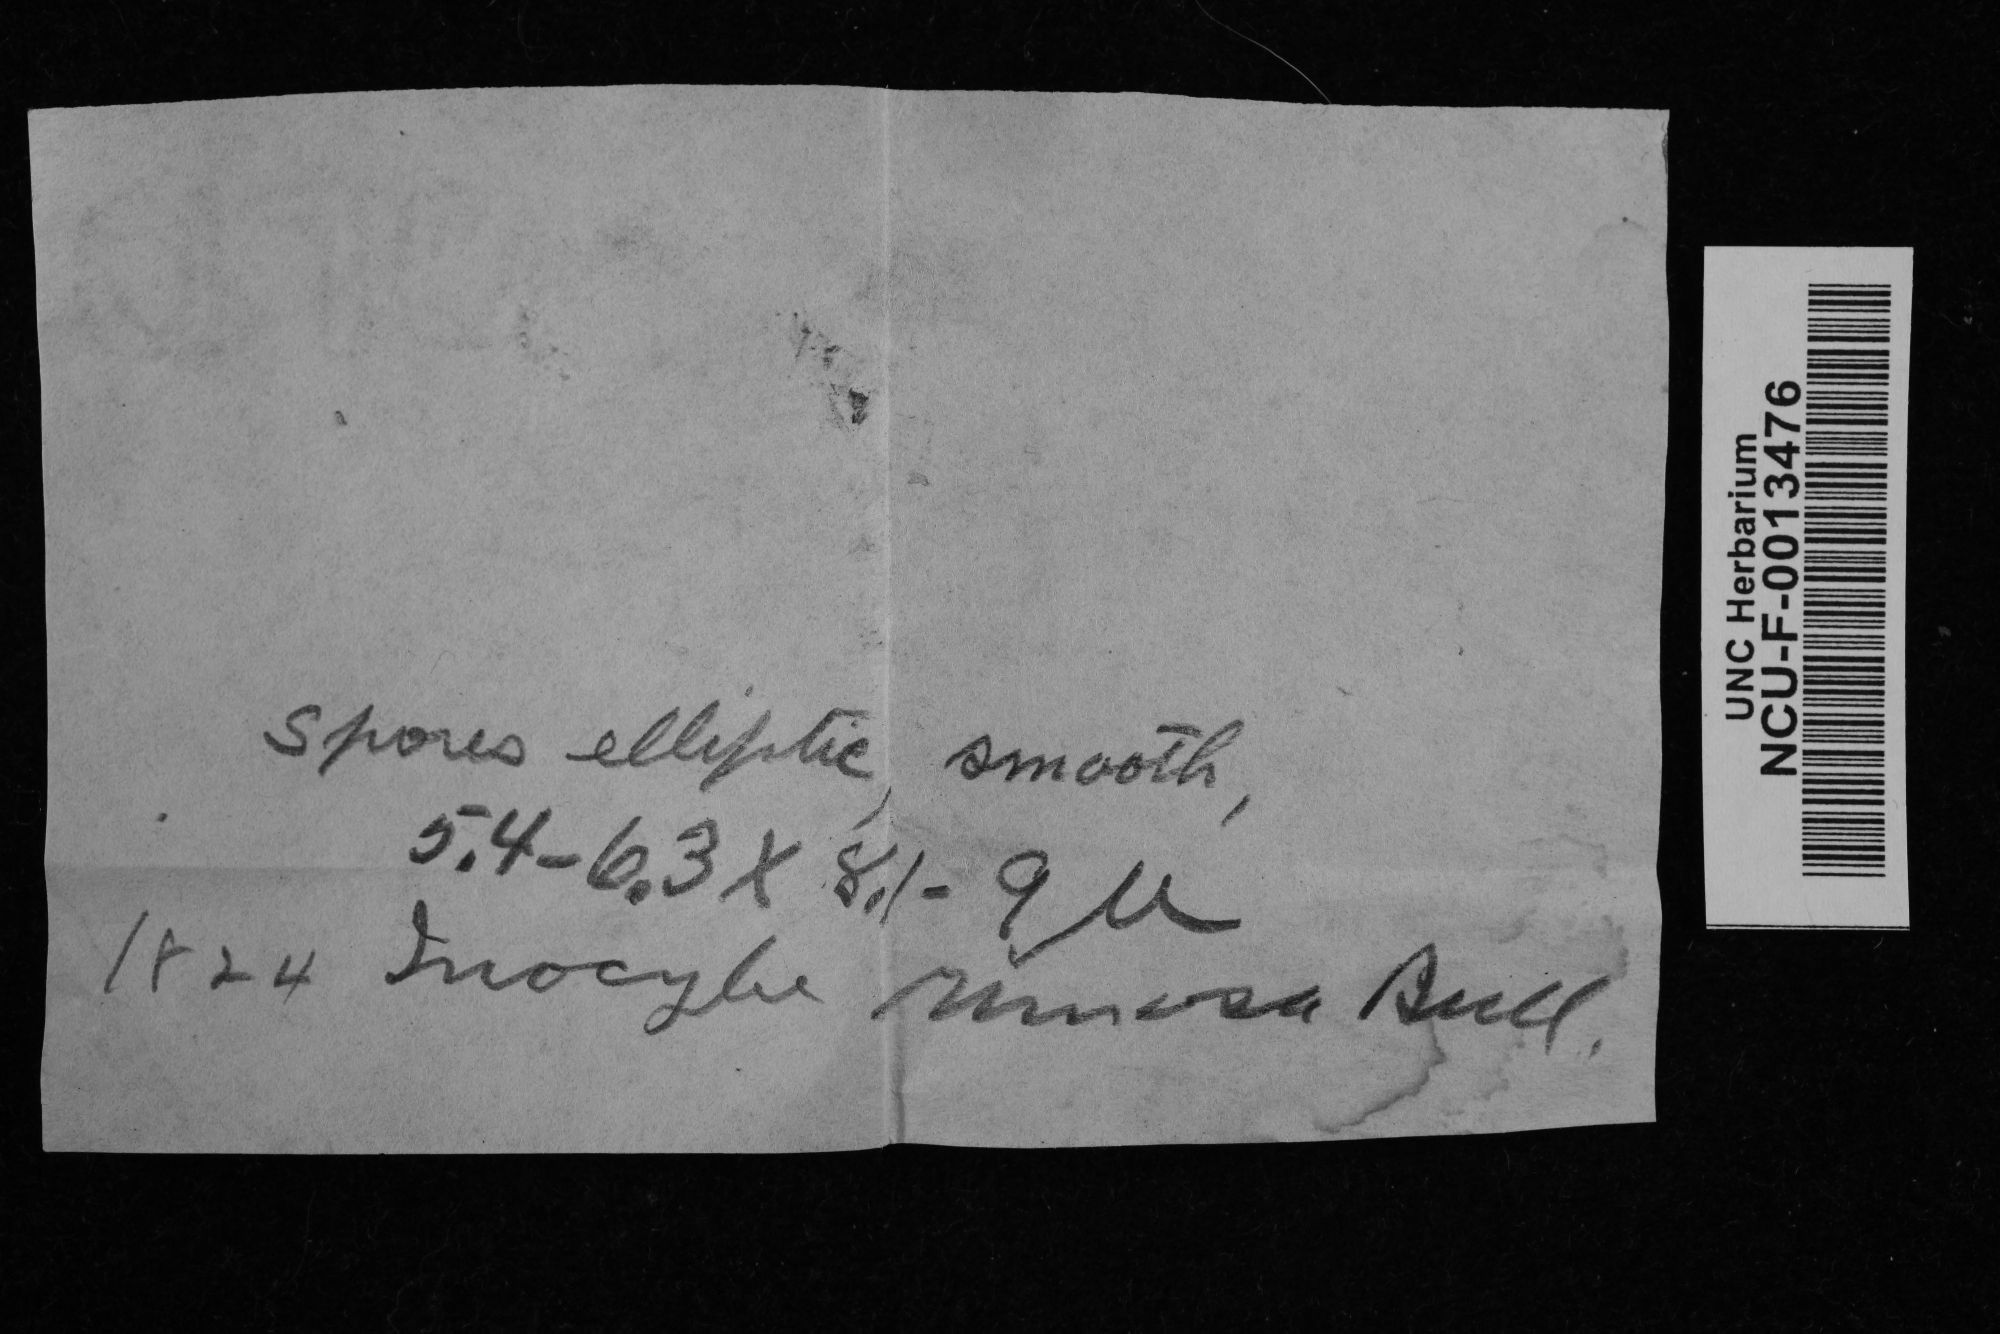 Spores elliptic, smooth,
5.4-6.3 X 8.1-9 µ
1824 Inocybe rimosa Bull.
UNC Herbarium
NCU-F-0013476